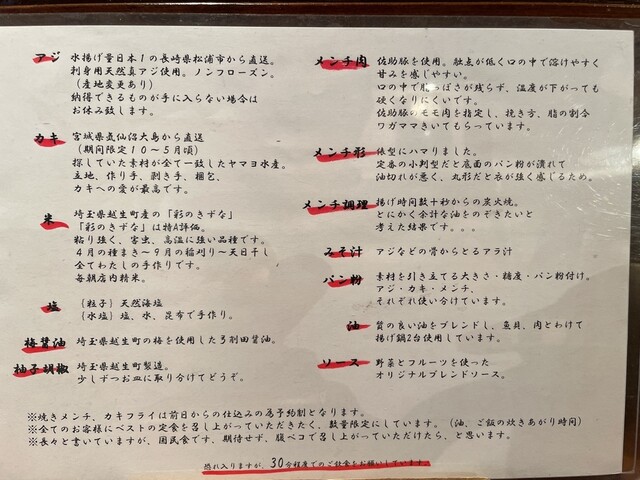 アジ 水揚げ量日本1の長崎県松浦市から直送。
刺身用天然真アジ使用。ノンフローズン。
（産地変更あり）
納得できるものが手に入らない場合は
お休み致します。
カキ 宮城県気仙沼大島から直送
（期間限定10～5月頃）
探していた素材が全て一致したヤマヨ水産。
立地、作り手、剥き手、梱包、
カキへの愛が最高です。
米 埼玉県越生町産の「彩のきずな」
「彩のきずな」は特A評価。
粘り強く、害虫、高温に強い品種です。
4月の種まき～9月の稲刈り～天日干し
全てわたしの手作りです。
毎朝店内精米。
塩 （粒子）天然海塩
（水塩）塩、水、昆布で手作り。
梅醤油 埼玉県越生町の梅を使用した弓削田醤油。
柚子胡椒 埼玉県越生町製造。
少しずつお皿に取り分けてどうぞ。
メンチ肉 佐助豚を使用。融点が低く口の中で溶けやすく
甘みを感じやすい。
口の中で脂っぽさが残らず、温度が下がっても
硬くなりにくいです。
佐助豚のモモ肉を指定し、挽き方、脂の割合
ワガママきいてもらっています。
メンチ形 俵型にハマりました。
定番の小判型だと底面のパン粉が潰れて
油切れが悪く、丸形だと衣が強く感じるため。
メンチ調理 揚げ時間数十秒からの炭火焼。
とにかく余計な油をのぞきたいと
考えた結果です。。。
みそ汁 アジなどの骨からとるアラ汁
パン粉 素材を引き立てる大きさ・糖度・パン粉付け。
アジ・カキ・メンチ、
それぞれ使い分けています。
油 質の良い油をブレンドし、魚貝、肉とわけて
揚げ鍋2台使用しています。
ソース 野菜とフルーツを使った
オリジナルブレンドソース。
※焼きメンチ、カキフライは前日からの仕込みの為予約制となります。
※全てのお客様にベストの定食を召し上がっていただきたく、数量限定にしています。（油、ご飯の炊きあがり時間）
※長々と書いていますが、困民食です、期待せず、腹ペコで召し上がっていただけたら、と思います。
恐れ入りますが、30分程度でのご飲食をお願いしています。